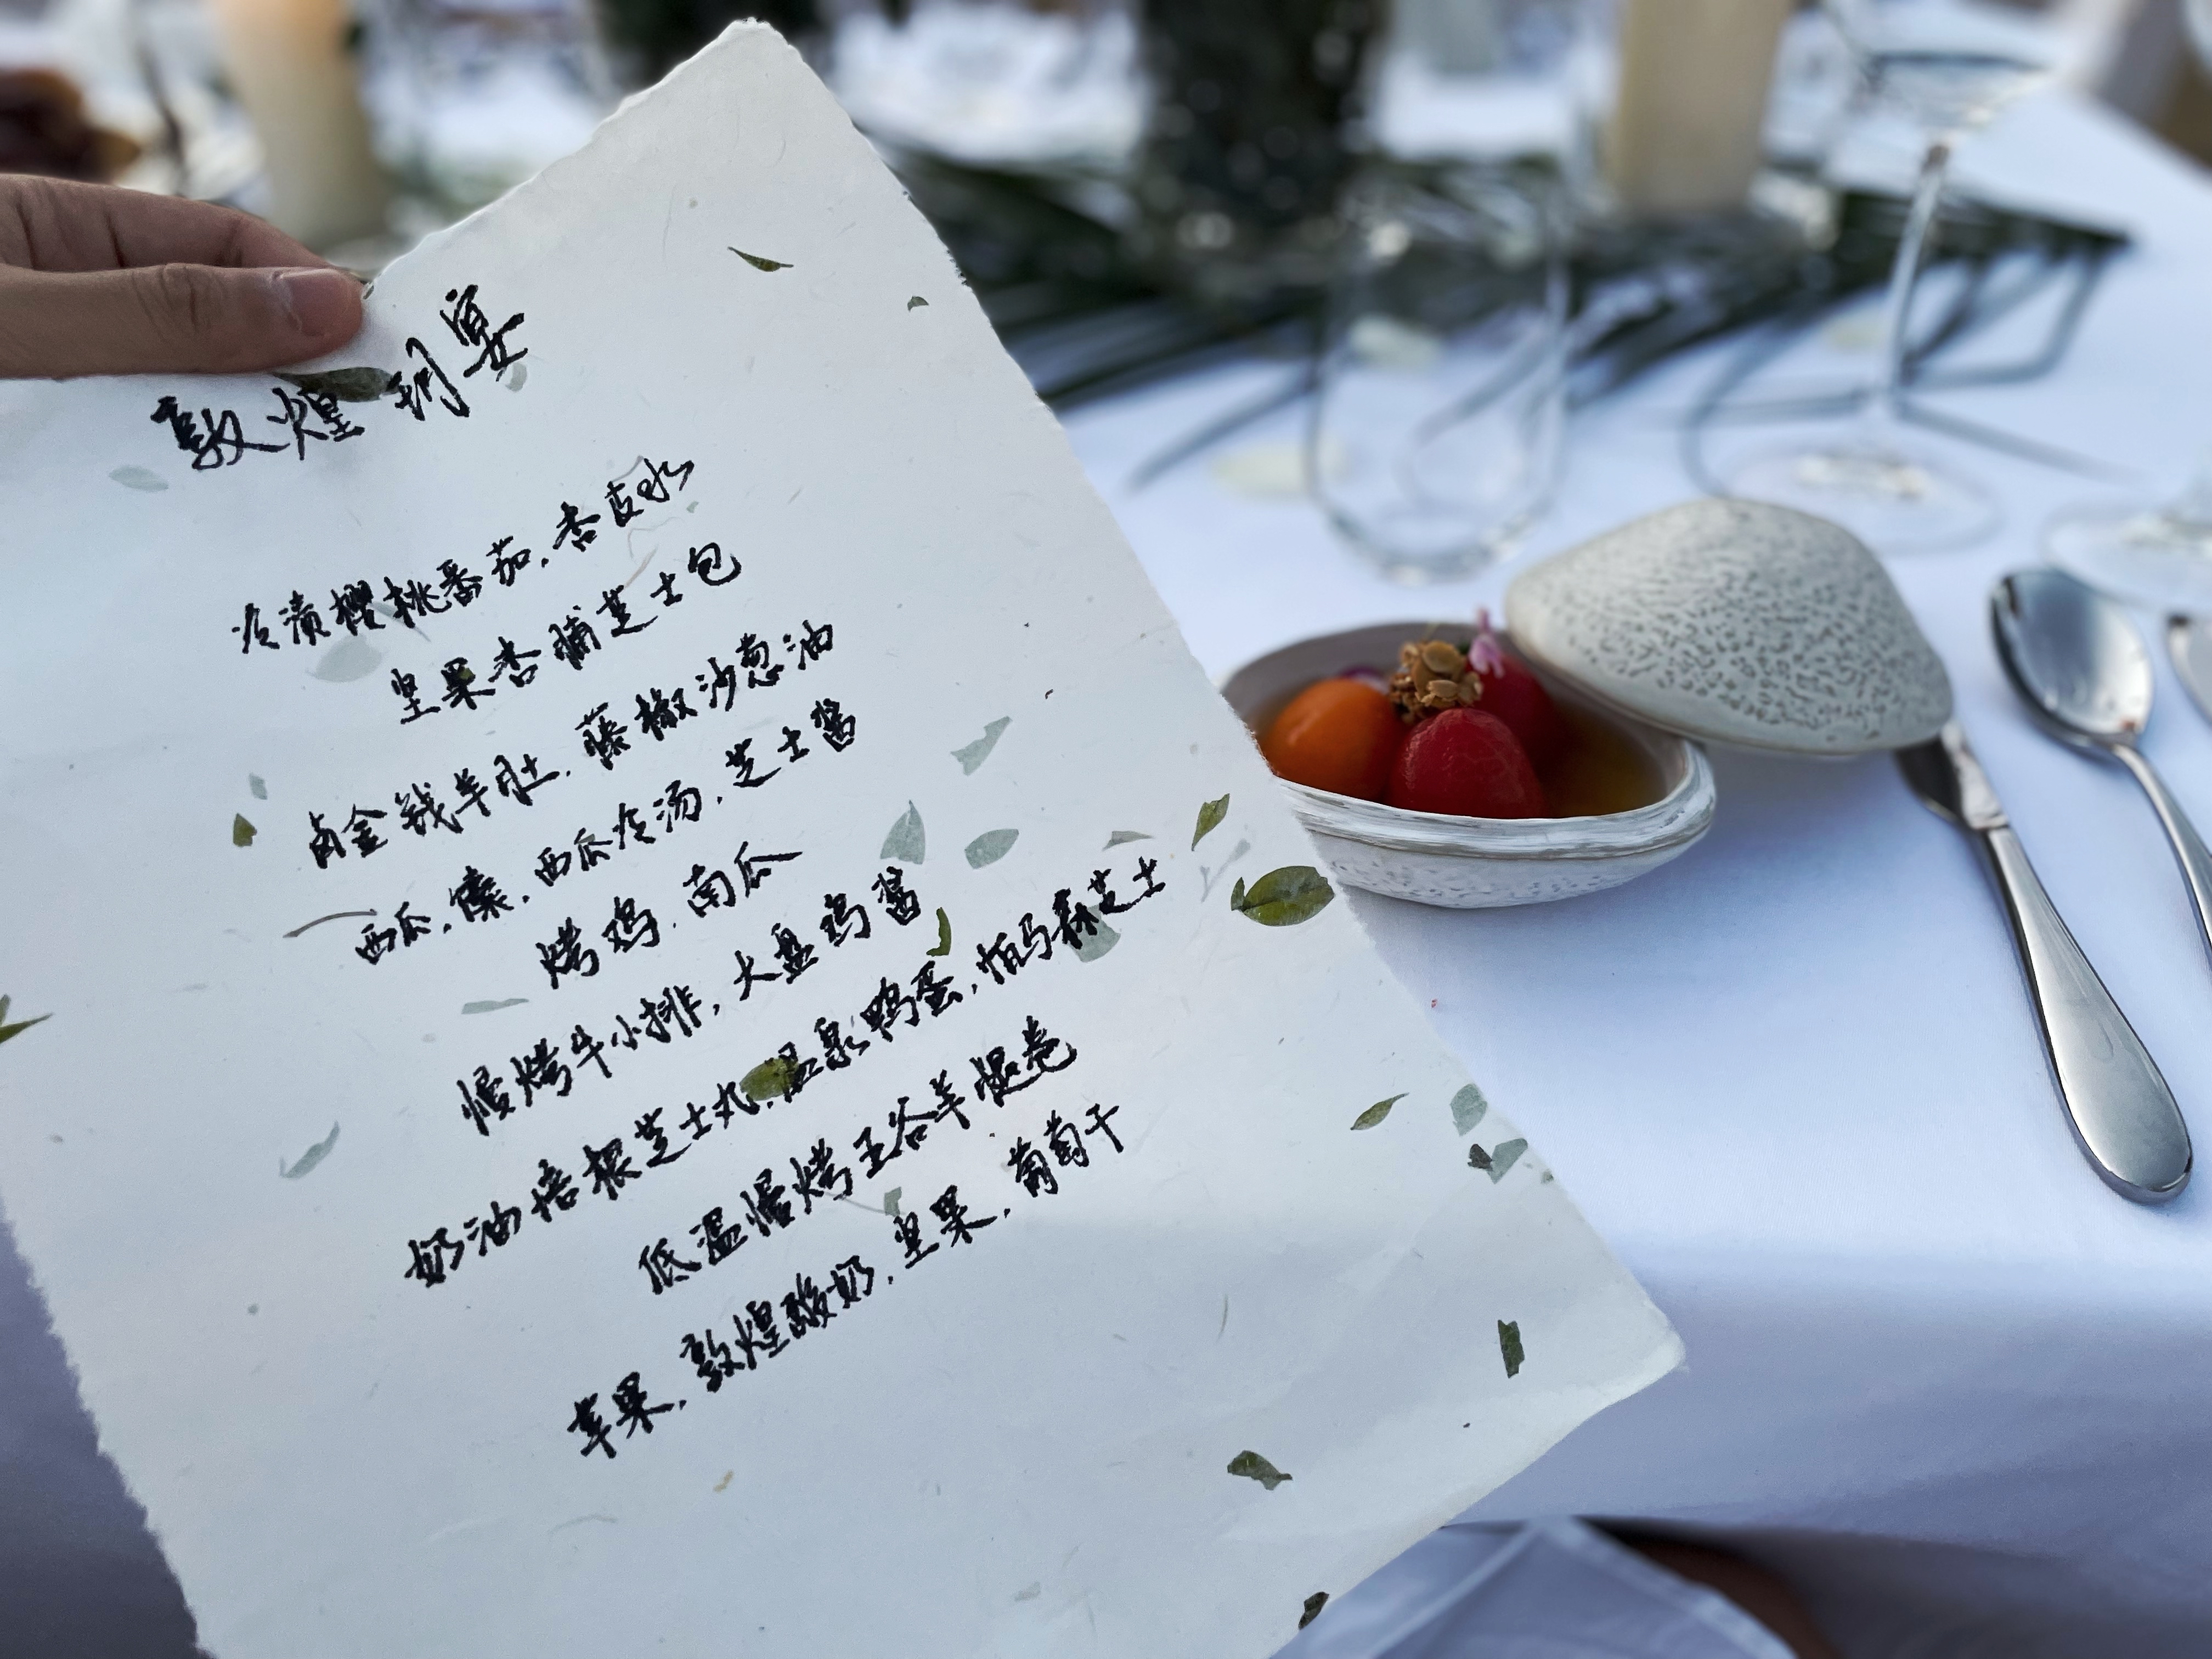 敦煌 宴
冷渍樱桃番茄.杏皮水
坚果杏脯芝士包
卤金钱羊肚.藤椒沙葱油
西瓜.馕.西瓜冷汤.芝士酱
烤鸡.南瓜
慢烤牛小排,大盘鸡酱
奶油培根芝士丸.温泉鸭蛋.帕马森芝士
低温慢烤五谷羊腿卷
苹果.敦煌酸奶.坚果.葡萄干